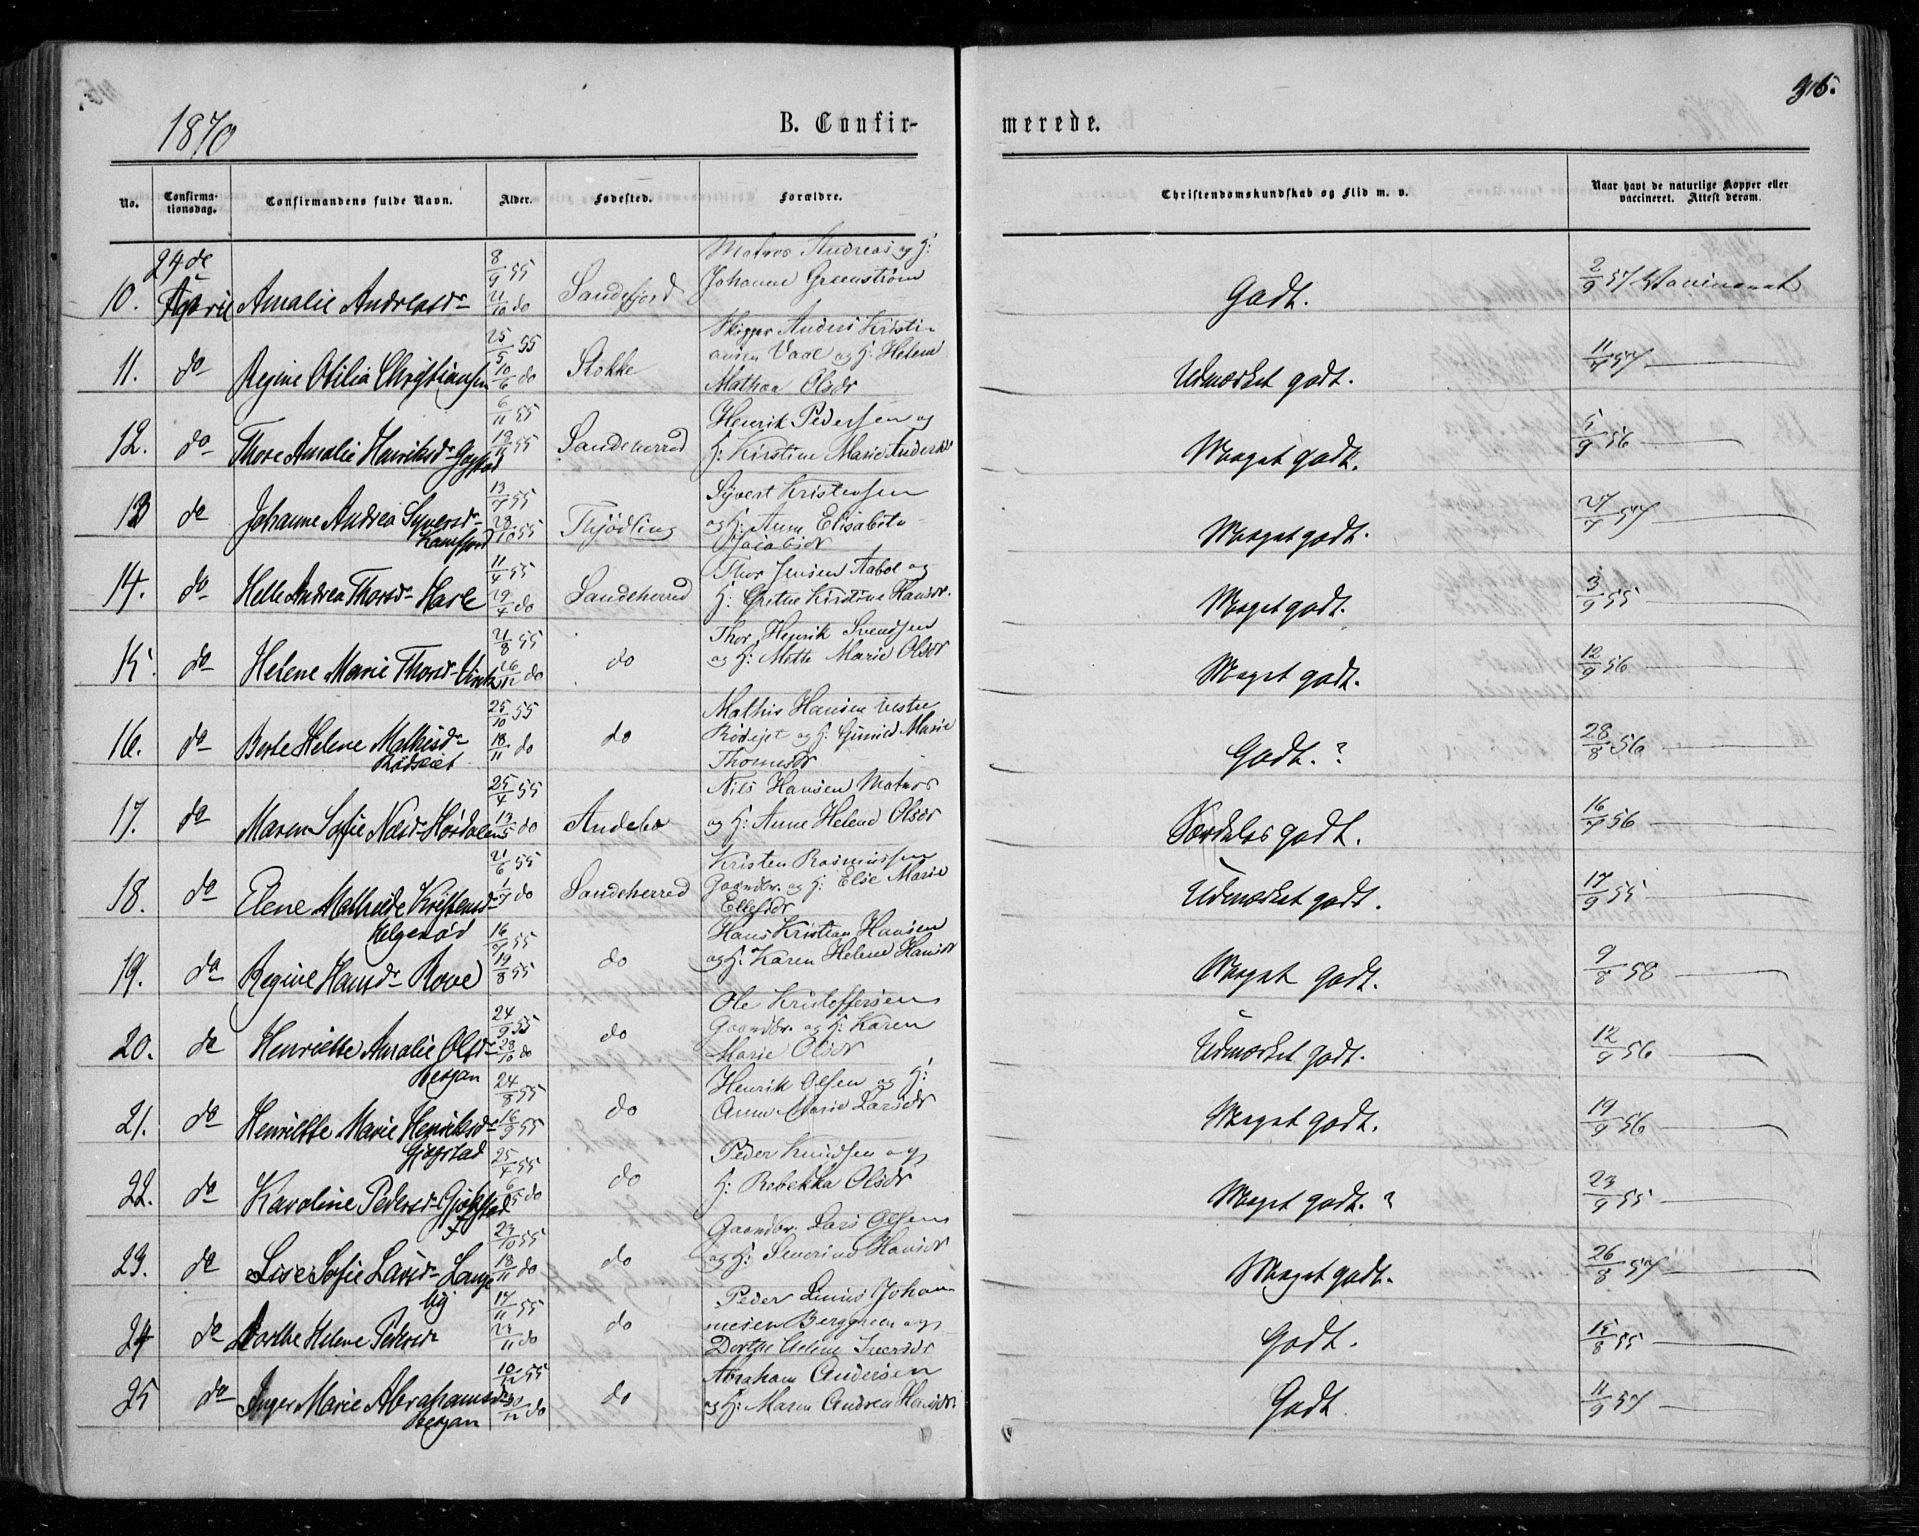 1870
B. Confir-
merede.
315.
No.
Confirma-
tionsdag.
Confirmandens fulde Navn.
Alder.
Fødested.
Forældre.
Christendomskundskab og Flid m. v.
Naar havt de naturlige Kopper eller
vaccineret. Attest derom.
24de
April
10. Amalie Andreasdr 8/9 55 21/10 do Sandefjord
Matros Andreas og H:
Johanne Greenstrøm
Godt. 2/9 57 Vaccineret
11. do Regine Otilia Christiansen 25/5 55 10/6 do Stokke
Skipper Anders Kristi-
ansen Vaae og H: Helene
Mathea Olsdr
Udmærket godt. 11/7 57
12. do Thore Amalie Henriksdr Gogstad 6/11 55 55 Sandeherred
Henrik Pedersen og
H: Kirstine Marie Andersdr
Meget godt. 5/9 56
13 do Johanne Andrea Syversdr 13/7 55 28/10 55 Thjødling
Kamfjord
Syvert Kristensen
og H: Anne Elisabeta
Jacobsdr
Meget godt. 27/7 57
14. do Helle Andrea Thorsdr Hasle 11/4 55 29/4 do Sandeherred
Thor Jensen Aabol og
H: Grethe Kirstine Hansdr.
Meget godt. 3/9 55
15 do Helene Marie Thorsdr Virik 21/8 55 26/12 do do
Thor Henrik Svendsen
og H: Mette Marie Olsdr
Meget godt. 12/9 56
16. do Berte Helene Mathisdr 25/10 55 18/11 do do
Rødseiet
Mathis Hansen vestre
Rødsjet og H: Gunild Marie
Thomesdr
Godt. ? 28/8 56
17. do Maren Sofie Nilsdr Hørdalen 25/4 55 13/5 do Andebo
Nils Hansen Matros
og H: Anne Helene Olsdr
Særdeles godt. 16/7 56
18. do Elene Mathilde Kristensdr 21/6 55 1/7 do Sandeherred
Helgerød
Kristen Rasmussen
Gaardbr. og H: Else Marie
Ellefsdr
Udmærket godt. 17/9 55
19. do Regine Hansdr Rove 16/7 55 19/8 55 do
Hans Kristian Hansen
og H: Karen Helene Hansdr
Meget godt. 9/8 58
20. do Henriette Amalie Olsdr 24/9 55 28/10 do do
Hesjan
Ole Kristoffersen
Gaardbr. og H: Karen
Marie Olsdr
Udmærket godt. 12/9 56
21. do Henriette Marie Henriksdr 24/8 55 16/9 55 do
Gjøgstad
Henrik Olsen og H:
Anne Marie Larsdr
Meget godt. 19/9 56
22. do Karoline Pedersdr Gjøgstad 25/4 55 6/5 do do
Peder Knudsen og
H: Rebekka Olsdr
Meget godt. ? 23/9 55
23. do Lise Sofie Larsdr Lange 23/10 55 18/11 do do
by
Gaardbr. Lars Olsen
og H: Severine Hansdr
Meget godt. 26/8 57
24 do Dorthe Helene Pedersdr 17/11 55 23/11 do do
Peder Linus Johan
nesen Berggreen og
Dorthe Helene Iversdr
Godt. 15/8 55
25 do Inger Marie Abrahamsdr 10/12 55 do do
Hesjan
Abraham Andersen
og H: Maren Andrea Hansdr
Godt. 11/9 57